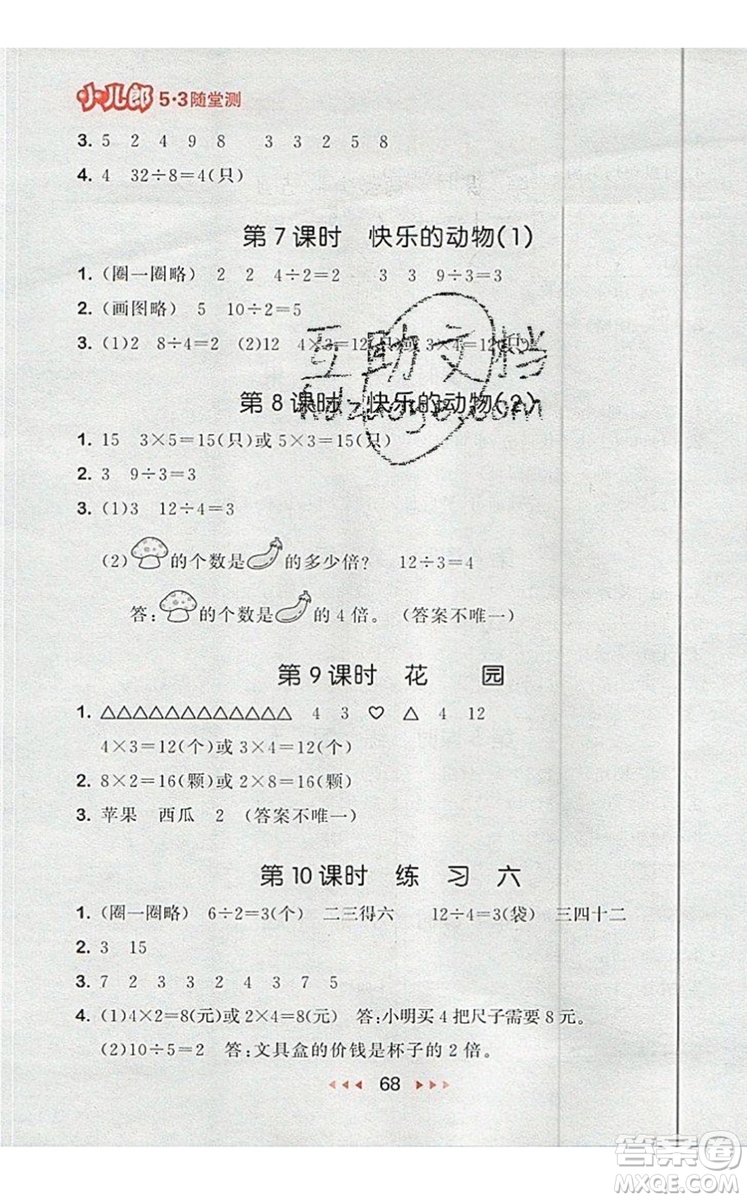 小儿郎 5·3随堂测
3. 5 2 4 9 8 3 3 2 5 8
4. 4 32÷8=4(只)
第7课时 快乐的动物(1)
1. (圈一圈略) 2 2 4÷2=2 3 3 9÷3=3
2. (画图略) 5 10÷2=5
3. (1)2 8÷4=2 (2)12 4×3=12(只)或3×4=12(只)
互助文档
第8课时 快乐的动物(2)
hdzuoye.com
1. 15 3×5=15(只)或5×3=15(只)
2. 3 9÷3=3
3. (1)3 12÷4=3
(2)的个数是的多少倍? 12÷3=4
答:的个数是的4倍。(答案不唯一)
第9课时 花 园
1. △△△△△△△△△△△△ 4 3 ♡ △ 4 12
4×3=12(个)或3×4=12(个)
2. 8×2=16(颗)或2×8=16(颗)
3. 苹果 西瓜 2 (答案不唯一)
第10课时 练 习 六
1. (圈一圈略) 6÷2=3(个) 二三得六 12÷4=3(袋) 三四十二
2. 3 15
3. 7 2 3 3 2 4 3 7 5
4. (1)4×2=8(元)或2×4=8(元) 答:小明买4把尺子需要8元。
(2)10÷5=2 答:文具盒的价钱是杯子的2倍。
68
答案圈
MXQE.COM